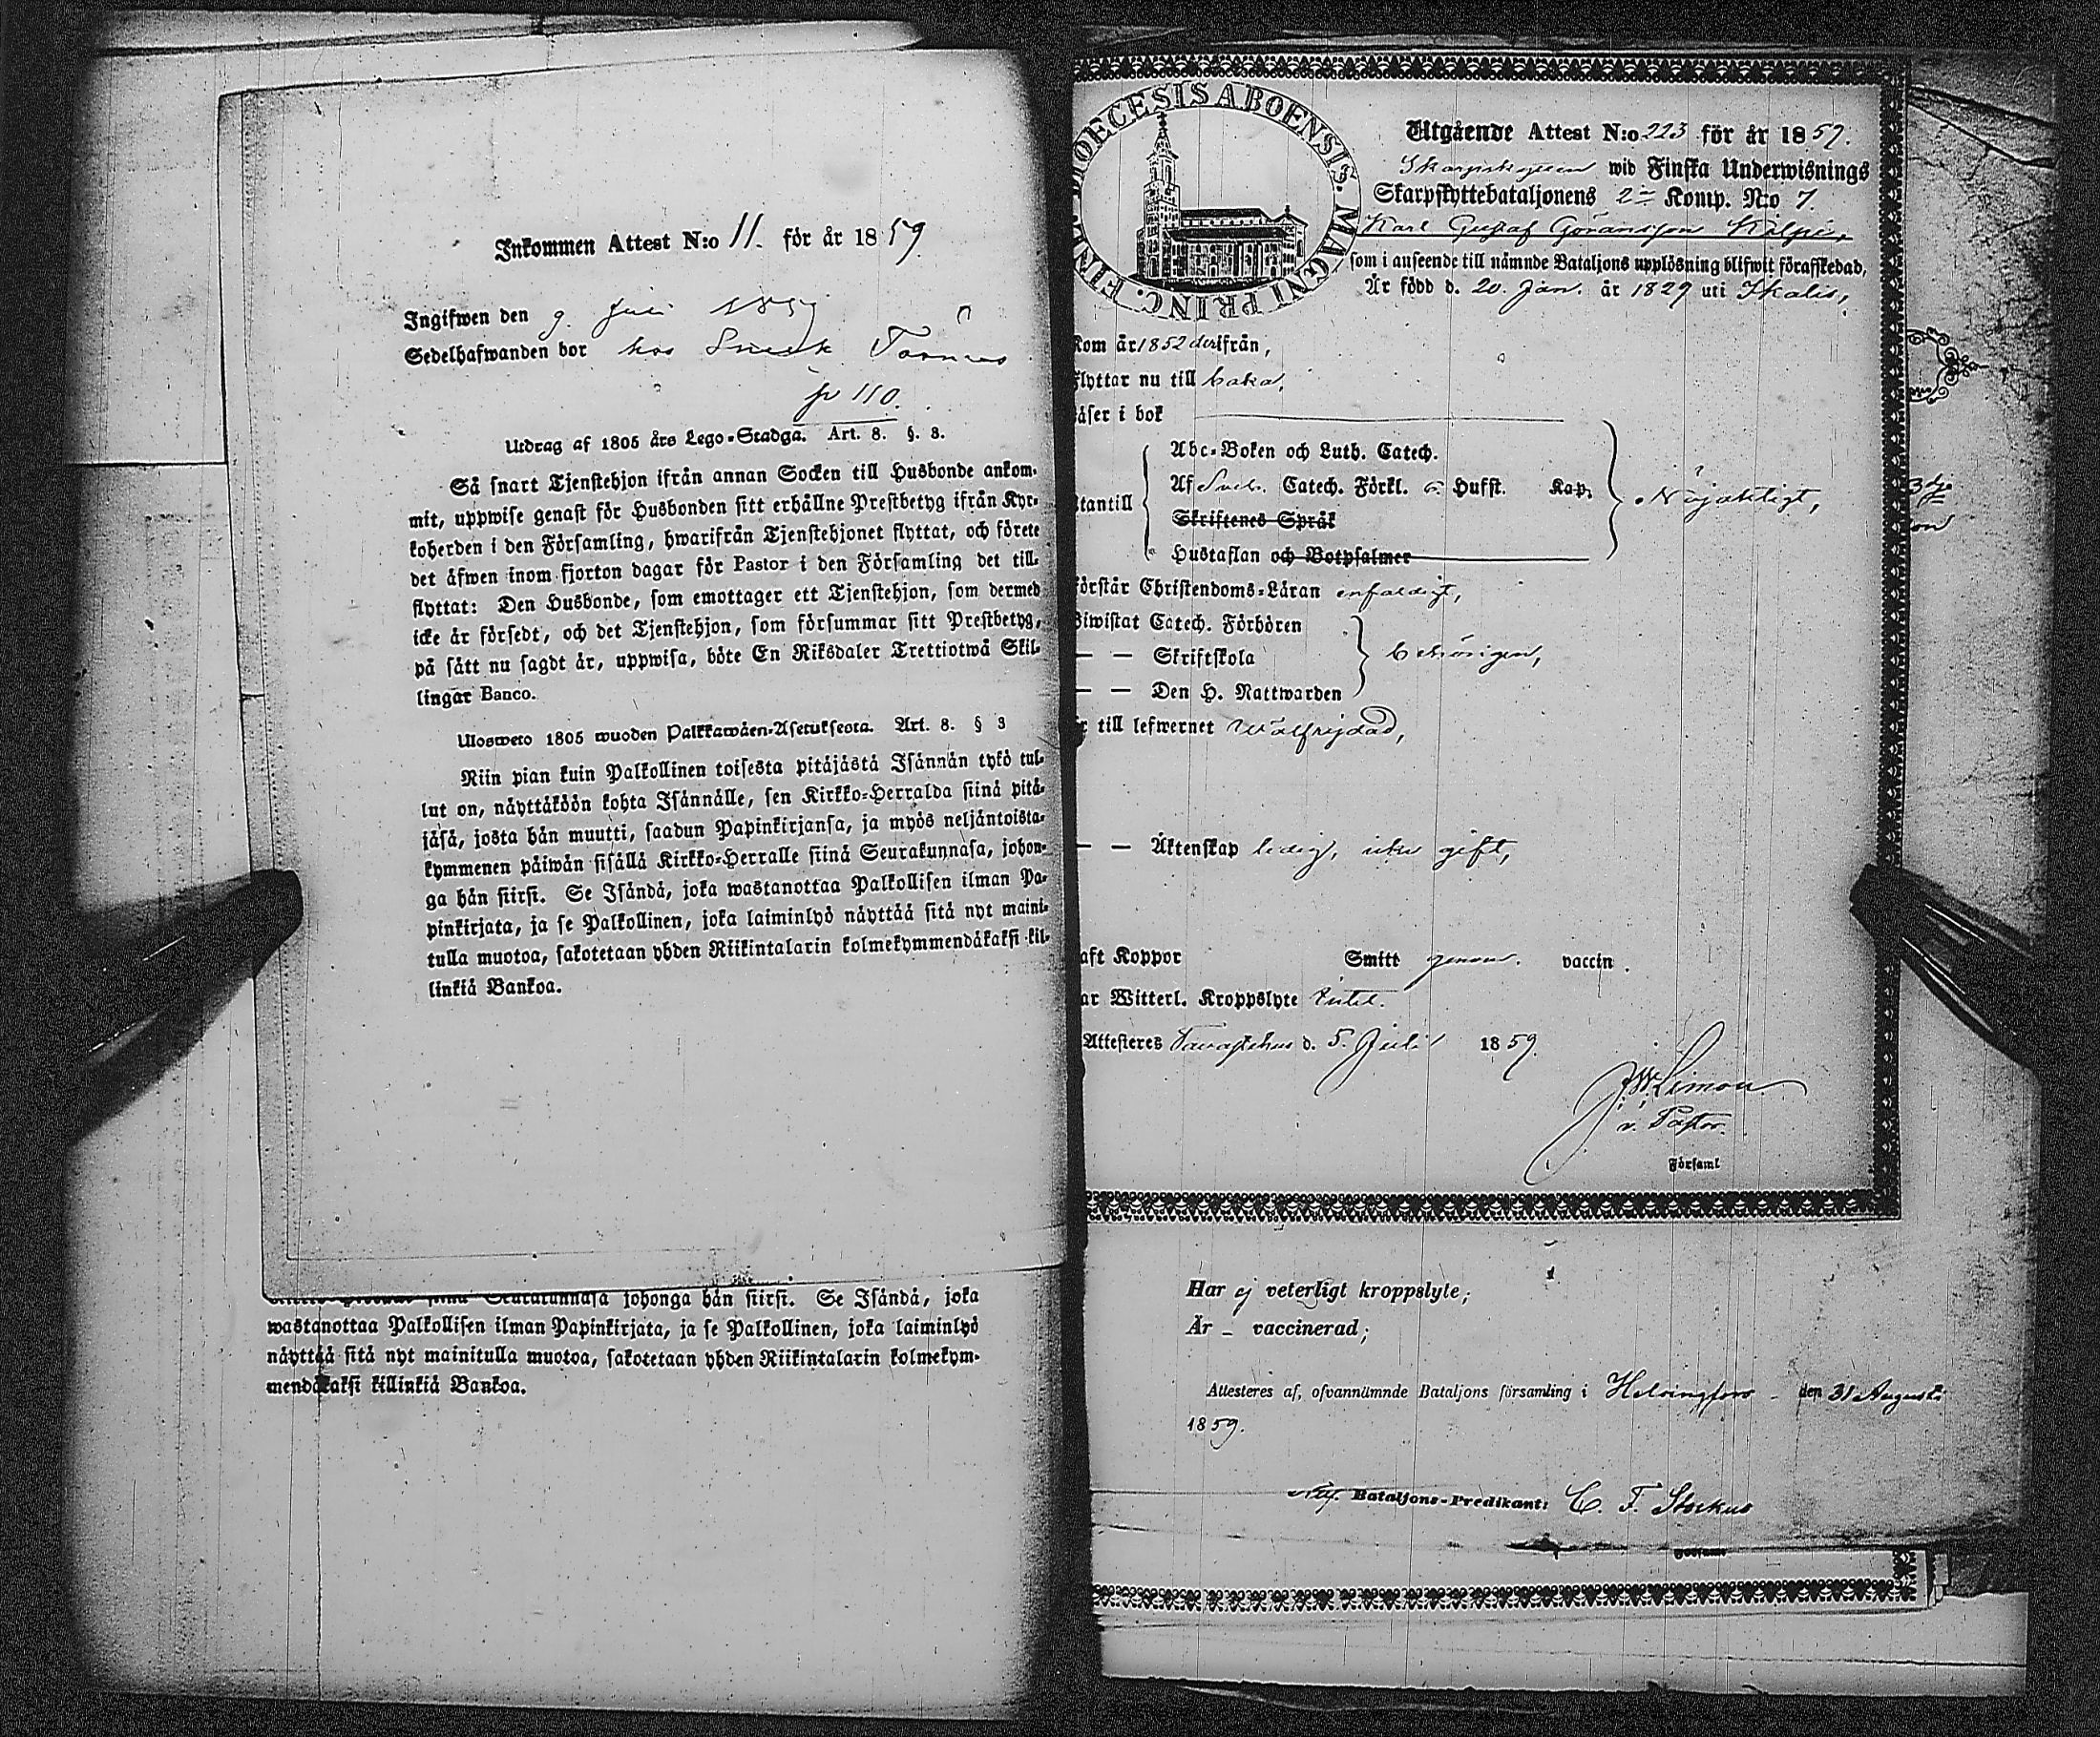 Inkommen Attest N:o 11. för år 1859.
Ingifwen den 9. Juli 1859
Sedelhafwanden bor hos
p 110.
Utdrag af 1805 års Lego-Stadga. Art. 8. §. 8.
Så snart Tjenstehjon ifrån annan Socken till Husbonde ankom-
mit, uppwise genast för Husbonden sitt erhållne Prestbetyg ifrån Kyr-
koherden i den Församling, hwarifrån Tjenstehjonet flyttat, och förete
det äfwen inom fjorton dagar för Pastor i den Församling det till-
flyttat: Den Husbonde, som emottager ett Tjenstehjon, som dermed
icke är försedt, och det Tjenstehjon, som försummar sitt Prestbetyg,
på sätt nu sagdt är, uppwisa, böte En Riksdaler Trettiotwå Skil-
lingar Banco.
Ulosweto 1805 wuoden Palkkawäen-Asetuksesta. Art. 8. § 3
Niin pian kuin Palkollinen toisesta pitäjästä Isännän tykö tul-
lut on, näyttäköön kohta Isännälle, sen Kirkko-Herralda siinä pitä-
jäsä, josta hän muutti, saadun Papinkirjansa, ja myös neljäntoista-
kymmenen päiwän sisällä Kirkko-Herralle siinä Seurakunnasa, johon-
ga hän siirsi. Se Isändä, joka wastanottaa Palkollisen ilman Pa-
pinkirjata, ja se Palkollinen, joka laiminlyö näyttää sitä nyt maini-
tulla muotoa, sakotetaan yhden Riikintalarin kolmekymmendäkaksi kil-
linkiä Bankoa.
Seurakunnasa johonga hän siirsi. Se Isändä, joka
wastanottaa Palkollisen ilman Papinkirjata, ja se Palkollinen, joka laiminlyö
näyttää sitä nyt mainitulla muotoa, sakotetaan yhden Riikintalarin kolmekym-
mendäkaksi killinkiä Bankoa.
DIOECESIS ABOENSIS. MAGNI PRINC. FINL.
Utgående Attest N:o 223 för år 1859.
wid Finska Underwisnings
Skarpskyttebataljonens 2=a Komp. N:o 7.
Karl Gustaf Göransson
som i anseende till nämnde Bataljons upplösning blifwit förafskedad,
Är född d. 20. Jan. år 1829 uti Ikalis,
Kom år 1852 derifrån,
Flyttar nu till baka,
äser i bok
Abc-Boken och Luth. Catech.
Af Sveb. Catech. Förkl. o. Husst. Kap.
Nöjaktigt,
tantill
Skriftenes Språk
Hustaflan och Botpsalmer
örstår Christendoms-Läran enfaldigt,
Biwistat Catech. Förhören
— — Skriftskola
behörigen,
— — Den H. Nattwarden
till lefwernet Wälfrejdad,
— — Äktenskap ledig, gift,
aft Koppor Smitt genom vaccin.
ar Witterl. Kroppslyte Intet.
Attesteres Tavastehus d. 5. Juli 1859.
v. Pastor.
Församl
Har ej veterligt kroppslyte;
Är – vaccinerad;
Attesteres af, ofvannämnde Bataljons församling i Helsingfors den 31 Augusti
1859.
Bataljons-Predikant: C. F.